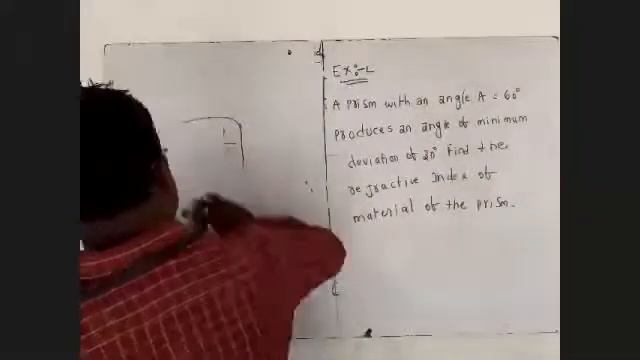 Ex:-L
A prism with an angle A = 60°
produces an angle of minimum
deviation of 30° Find the
refractive index of
material of the prism.